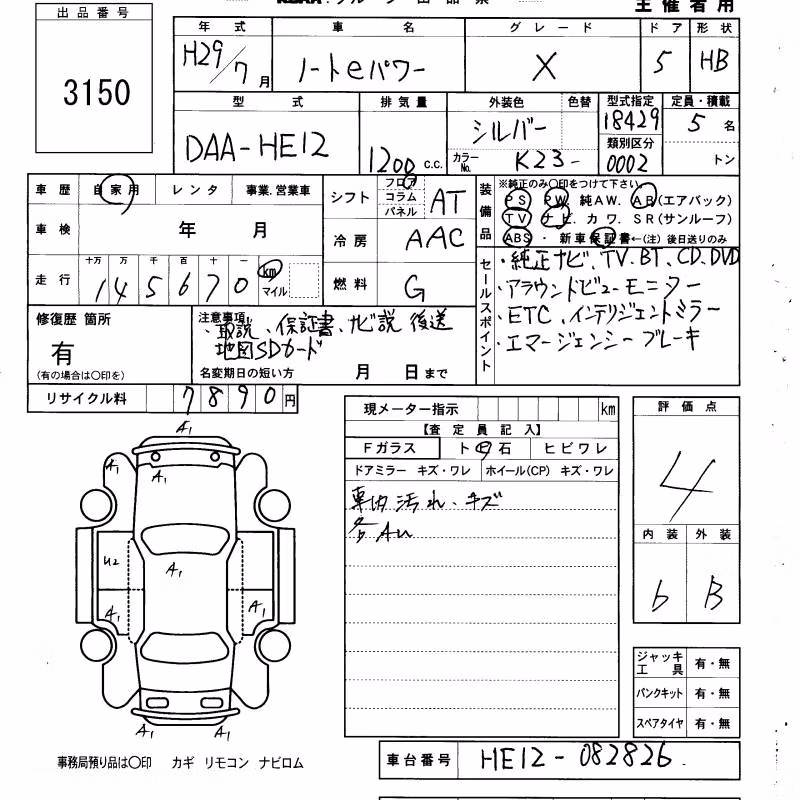 主催者用
出品番号
3150
年式 車名 グレード ドア 形状
H29/7月 ノートeパワー X 5 HB
型式 排気量 外装色 色替 型式指定 定員・積載
DAA-HE12 1200 c.c. シルバー 18429 5名
カラーNo. K23- 類別区分 0002 トン
車歴 自家用 レンタ 事業.営業車
シフト フロア コラム パネル AT
装備品 ※純正のみ〇印をつけて下さい。
PS PW 純AW. AB(エアバック)
TV ナビ. カワ. SR(サンルーフ)
ABS ・ 新車保証書←(注) 後日送りのみ
車検 年 月
冷房 AAC
走行 十万 万 千 百 十 一 km マイル
145670
燃料 G
セールスポイント
・純正ナビ、TV、BT、CD、DVD
・アラウンドビューモニター
・ETC、インテリジェントミラー
・エマージェンシーブレーキ
修復歴 箇所
有
(有の場合は〇印を)
注意事項
・取説、保証書、ナビ説 後送
地図SDカード
名変期日の短い方 月 日まで
リサイクル料 7890円
現メーター指示 km
【査定員記入】
Fガラス ト 石 ヒビワレ
ドアミラー キズ・ワレ ホイール(CP) キズ・ワレ
車内汚れ、キズ
各AU
評価点
4
内装 外装
6 B
A1
A1 A1
U2 A1
A1 A1
A1 A1
ジャッキ工具 有・無
パンクキット 有・無
スペアタイヤ 有・無
車台番号 HE12-082826
事務局預り品は〇印 カギ リモコン ナビロム